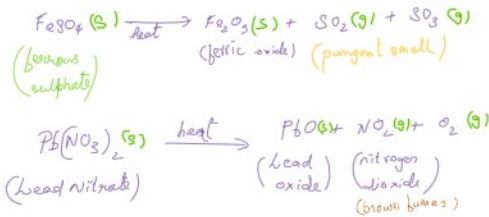 FeSO4 (s) heat → Fe2O3 (s) + SO2 (g) + SO3 (g)
(ferrous sulphate) (ferric oxide) (pungent smell)
Pb(NO3)2 (s) heat → PbO(s) + NO2 (g) + O2 (g)
(Lead Nitrate) (Lead oxide) (nitrogen dioxide)
(brown fumes)